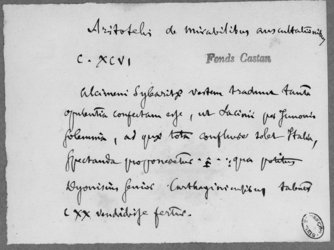 Aristotelis de mirabilibus auscultationib,
C. XCVI
Fonds Castan
Alcimeni Sybaritæ vestem tradunt tanta
opulentia confectam esse, ut Lacinii per Junonis
solemnia, ad quæ tota confluere solet Italia,
spectanda proponeretur qua potitus
Dyonisius senius Carthaginiensibus talentis
CXX vendidisse fertur.